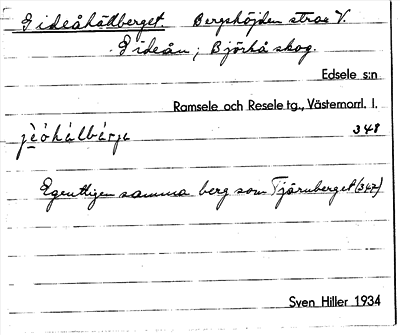 Gideåhällberget Bergshöjden strax V.
Gideån; Björkå skog.
Edsele s:n
Ramsele och Resele tg., Västernorrl. l.
348
Egentligen samma berg som Tjärnberget (347)
Sven Hiller 1934